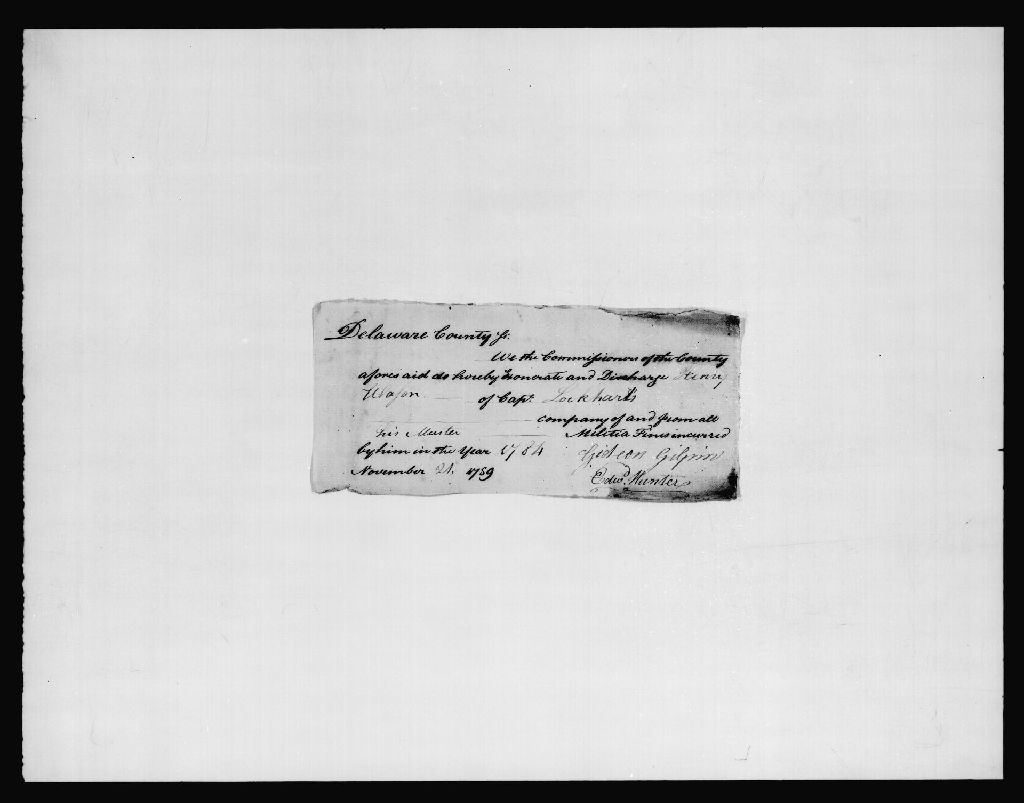 Delaware County ss.
We the Commissioners of the County
aforesaid do hereby Exonorate and Discharge Henry
of Capt. Lockharts
company of and from all
his Muster Militia Fines incurred
by him in the Year 1784 Gideon Gilpin
November 21. 1789 Edwd. Hunter